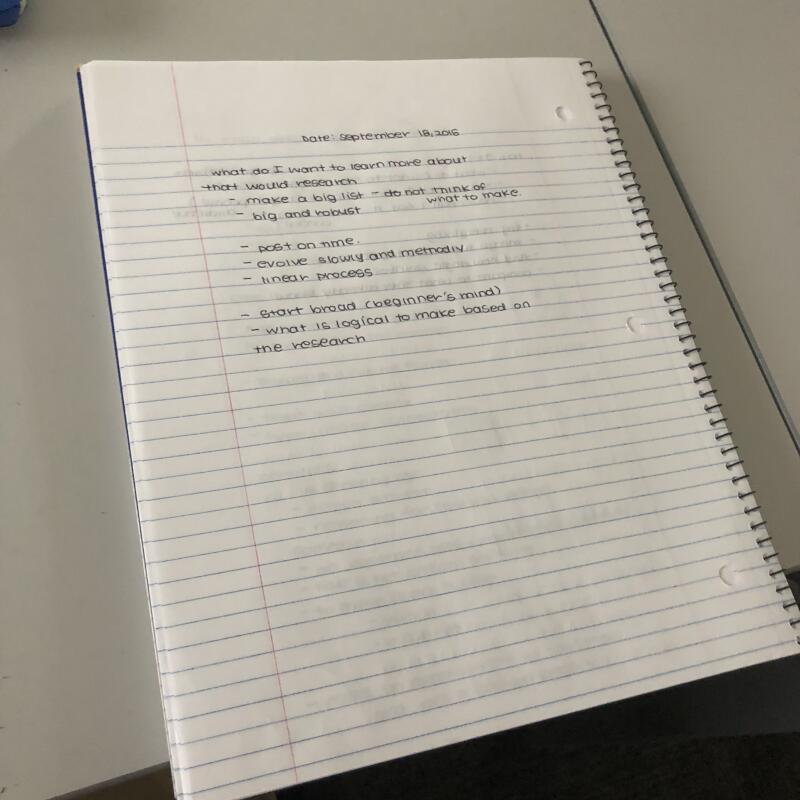 Date: September 18, 2018
what do I want to learn more about
that would research
- make a big list - do not think of
what to make.
- big and robust
- post on time.
- evolve slowly and methodly
- linear process
- start broad (beginner's mind)
- what is logical to make based on
the research